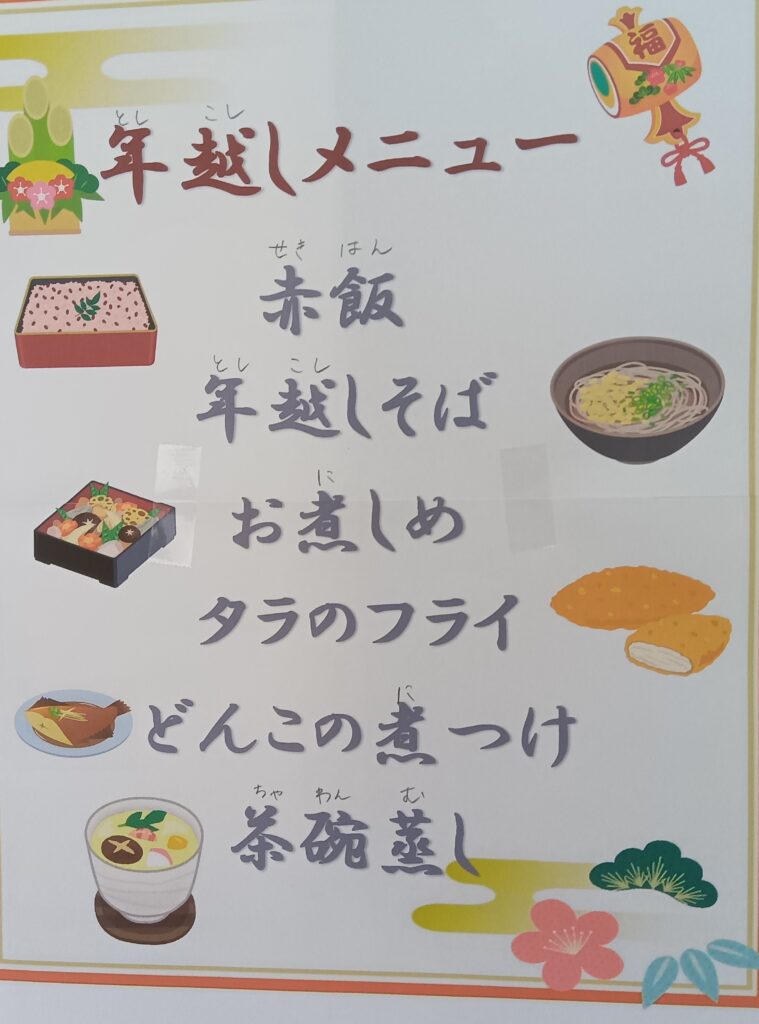 福
とし こし
年越しメニュー
せき はん
赤飯
とし こし
年越しそば
に
お煮しめ
タラのフライ
に
どんこの煮つけ
ちゃ わん む
茶碗蒸し